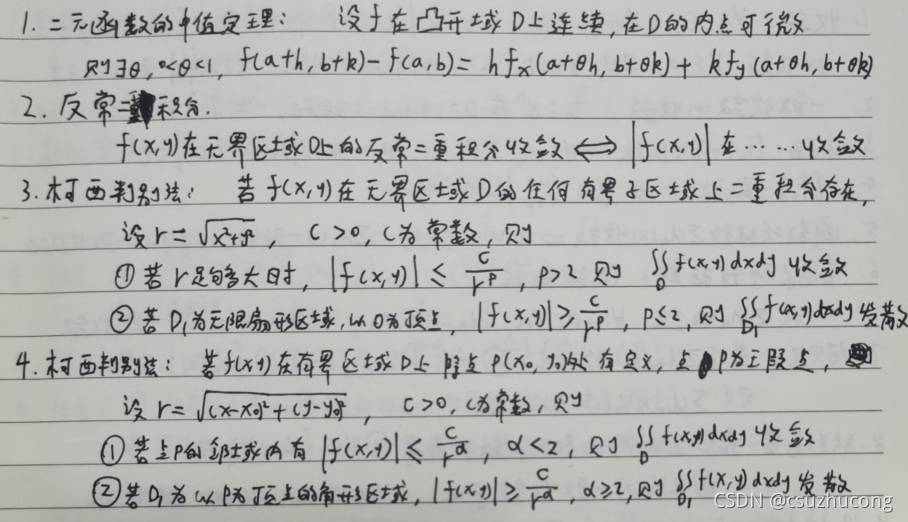 1. 二元函数的中值定理： 设f在凸开域D上连续，在D的内点可微
则∃θ, 0<θ<1, f(a+h, b+k) - f(a,b) = hf_x(a+θh, b+θk) + kf_y(a+θh, b+θk)
2. 反常二重积分.
f(x,y)在无界区域D上的反常二重积分收敛 ⟺ |f(x,y)| 在……收敛
3. 柯西判别法： 若f(x,y)在无界区域D的任何有界子区域上二重积分存在,
设 r = √(x²+y²), C>0, C为常数, 则
① 若r足够大时, |f(x,y)| ≤ C/r^p, p>2, 则 ∬_D f(x,y)dxdy 收敛
② 若D₁为无限扇形区域, 以O为顶点, |f(x,y)| ≥ C/r^p, p≤2, 则 ∬_D₁ f(x,y)dxdy 发散
4. 柯西判别法： 若f(x,y)在有界区域D上除点P(x₀, y₀)处有定义, 点P为正瑕点,
设 r = √((x-x₀)²+(y-y₀)²), C>0, C为常数, 则
① 若点P的邻域内有 |f(x,y)| ≤ C/r^α, α<2, 则 ∬_D f(x,y)dxdy 收敛
② 若D₁为以P为顶点的角形区域, |f(x,y)| ≥ C/r^α, α≥2, 则 ∬_D₁ f(x,y)dxdy 发散
CSDN @csuzhucong